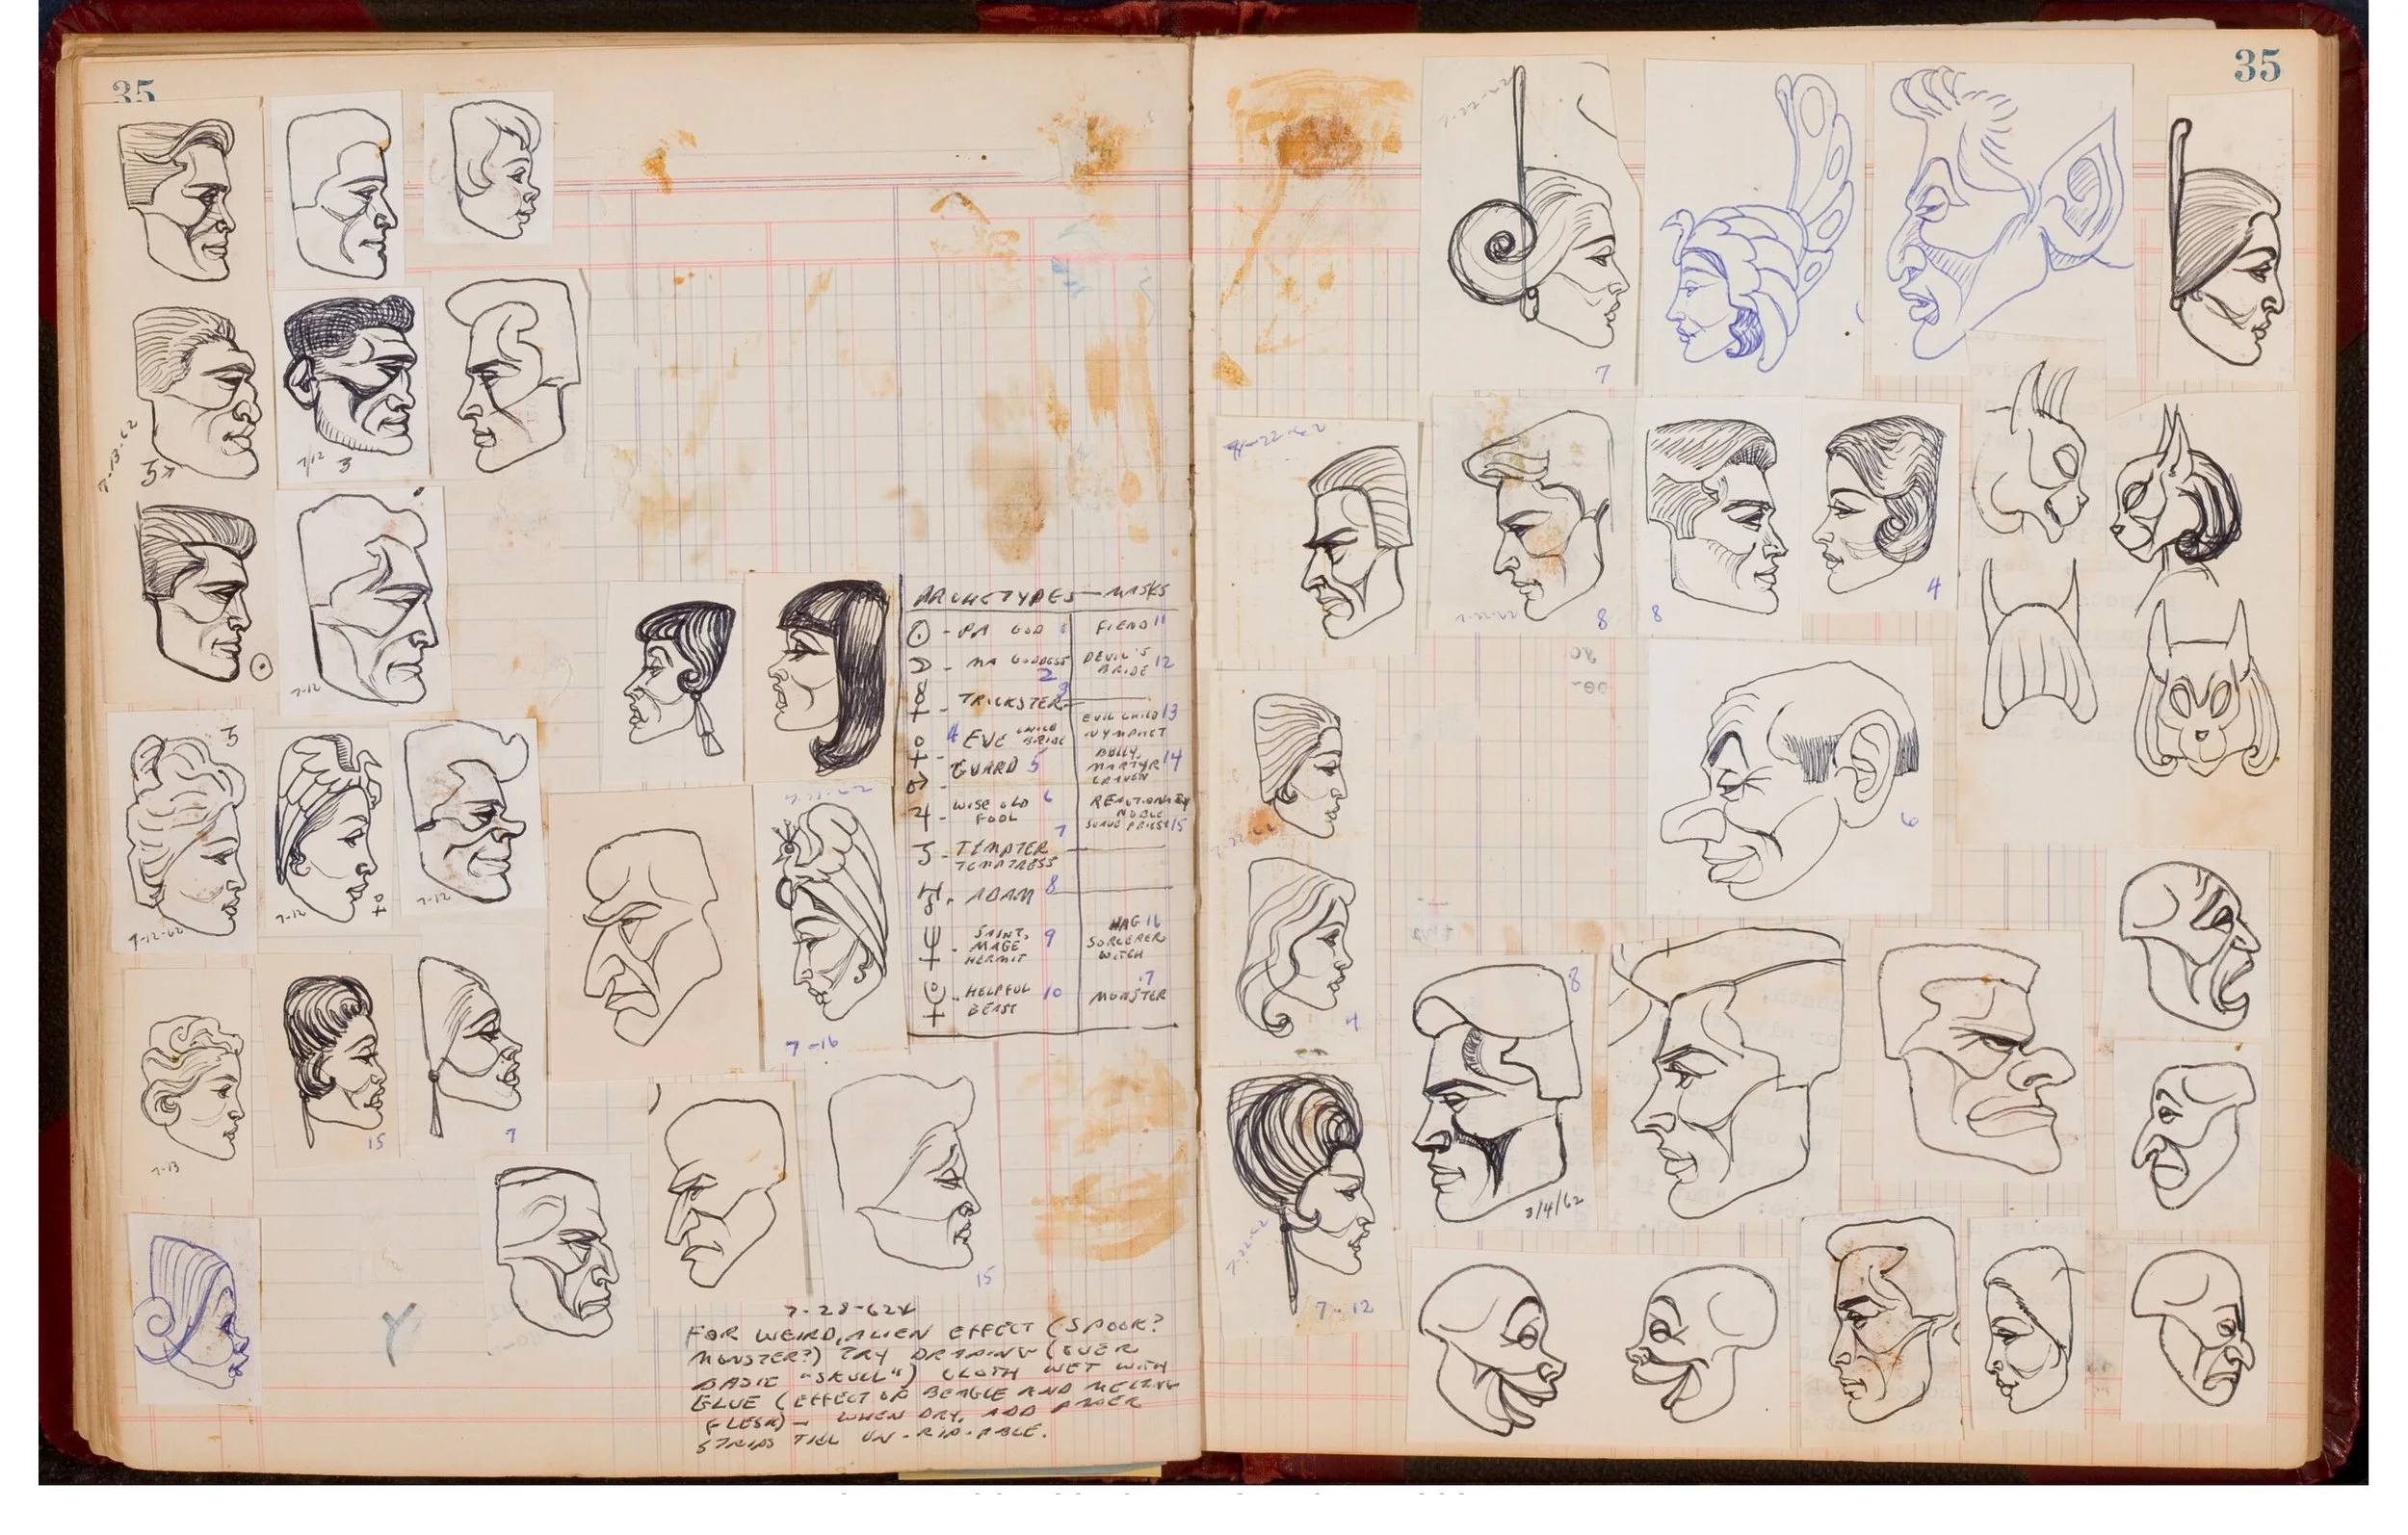 35
35
7-13-62
5
7/12 3
7-12
5
7-12-62
7-12
7-12
7-13
15
7
ARCHETYPES — MASKS
☉ - PA GOD 1 FIEND 11
☽ - MA GODDESS 2 DEVIL'S BRIDE 12
☿ - TRICKSTER 3
♀ - 4 EVE CHILD BRIDE EVIL CHILD 13 NYMPHET
♂ - GUARD 5 BULLY, MARTYR 14 CRAVEN
♃ - WISE OLD FOOL 6 REACTIONARY NOBLE SUAVE PRIEST 15
TEMPTER 7
TEMPTRESS
ADAM 8
♆ - SAINT, MAGE HERMIT 9 HAG 16 SORCERER WITCH
HELPFUL BEAST 10 17 MONSTER
7-16
15
7-28-62
FOR WEIRD, ALIEN EFFECT (SPOOK?
MONSTER?) TRY DRAPING (OVER
BASIC "SKULL") CLOTH WET WITH
GLUE (EFFECT OF BEAGLE AND MELTING
FLESH) — WHEN DRY, ADD PAPER
STRIPS TILL UN-RIP-ABLE.
7-22-62
7
7-22-62
8
8
4
6
7-22-62
4
8
8/4/62
7-22-62
7-12